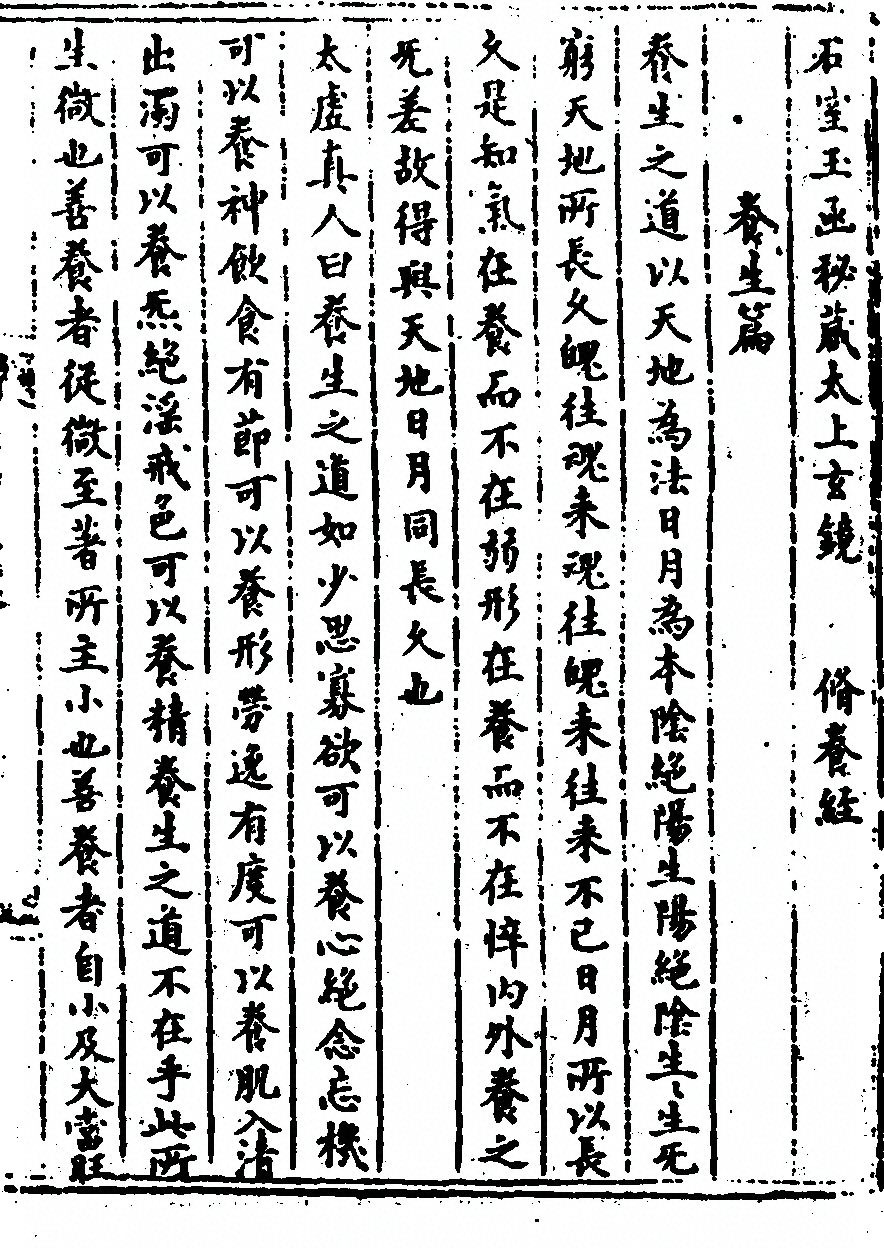 石室玉函秘蔵太上玄鏡 脩養経
養生篇
養生之道以天地為法日月為本陰絶陽生陽絶陰生〻生死
窮天地所長久魄往魂来魂往魄来往来不已日月所以長
久是知氣在養而不在弱形在養而不在悴内外養之
旡差故得與天地日月同長久也
太虚真人曰養生之道如少思寡欲可以養心絶念忘機
可以養神飲食有節可以養形勞逸有度可以養肌入清
出濁可以養炁絶淫戒色可以養精養生之道不在乎此所
生微也善養者従微至著所主小也善養者自小及大當旺